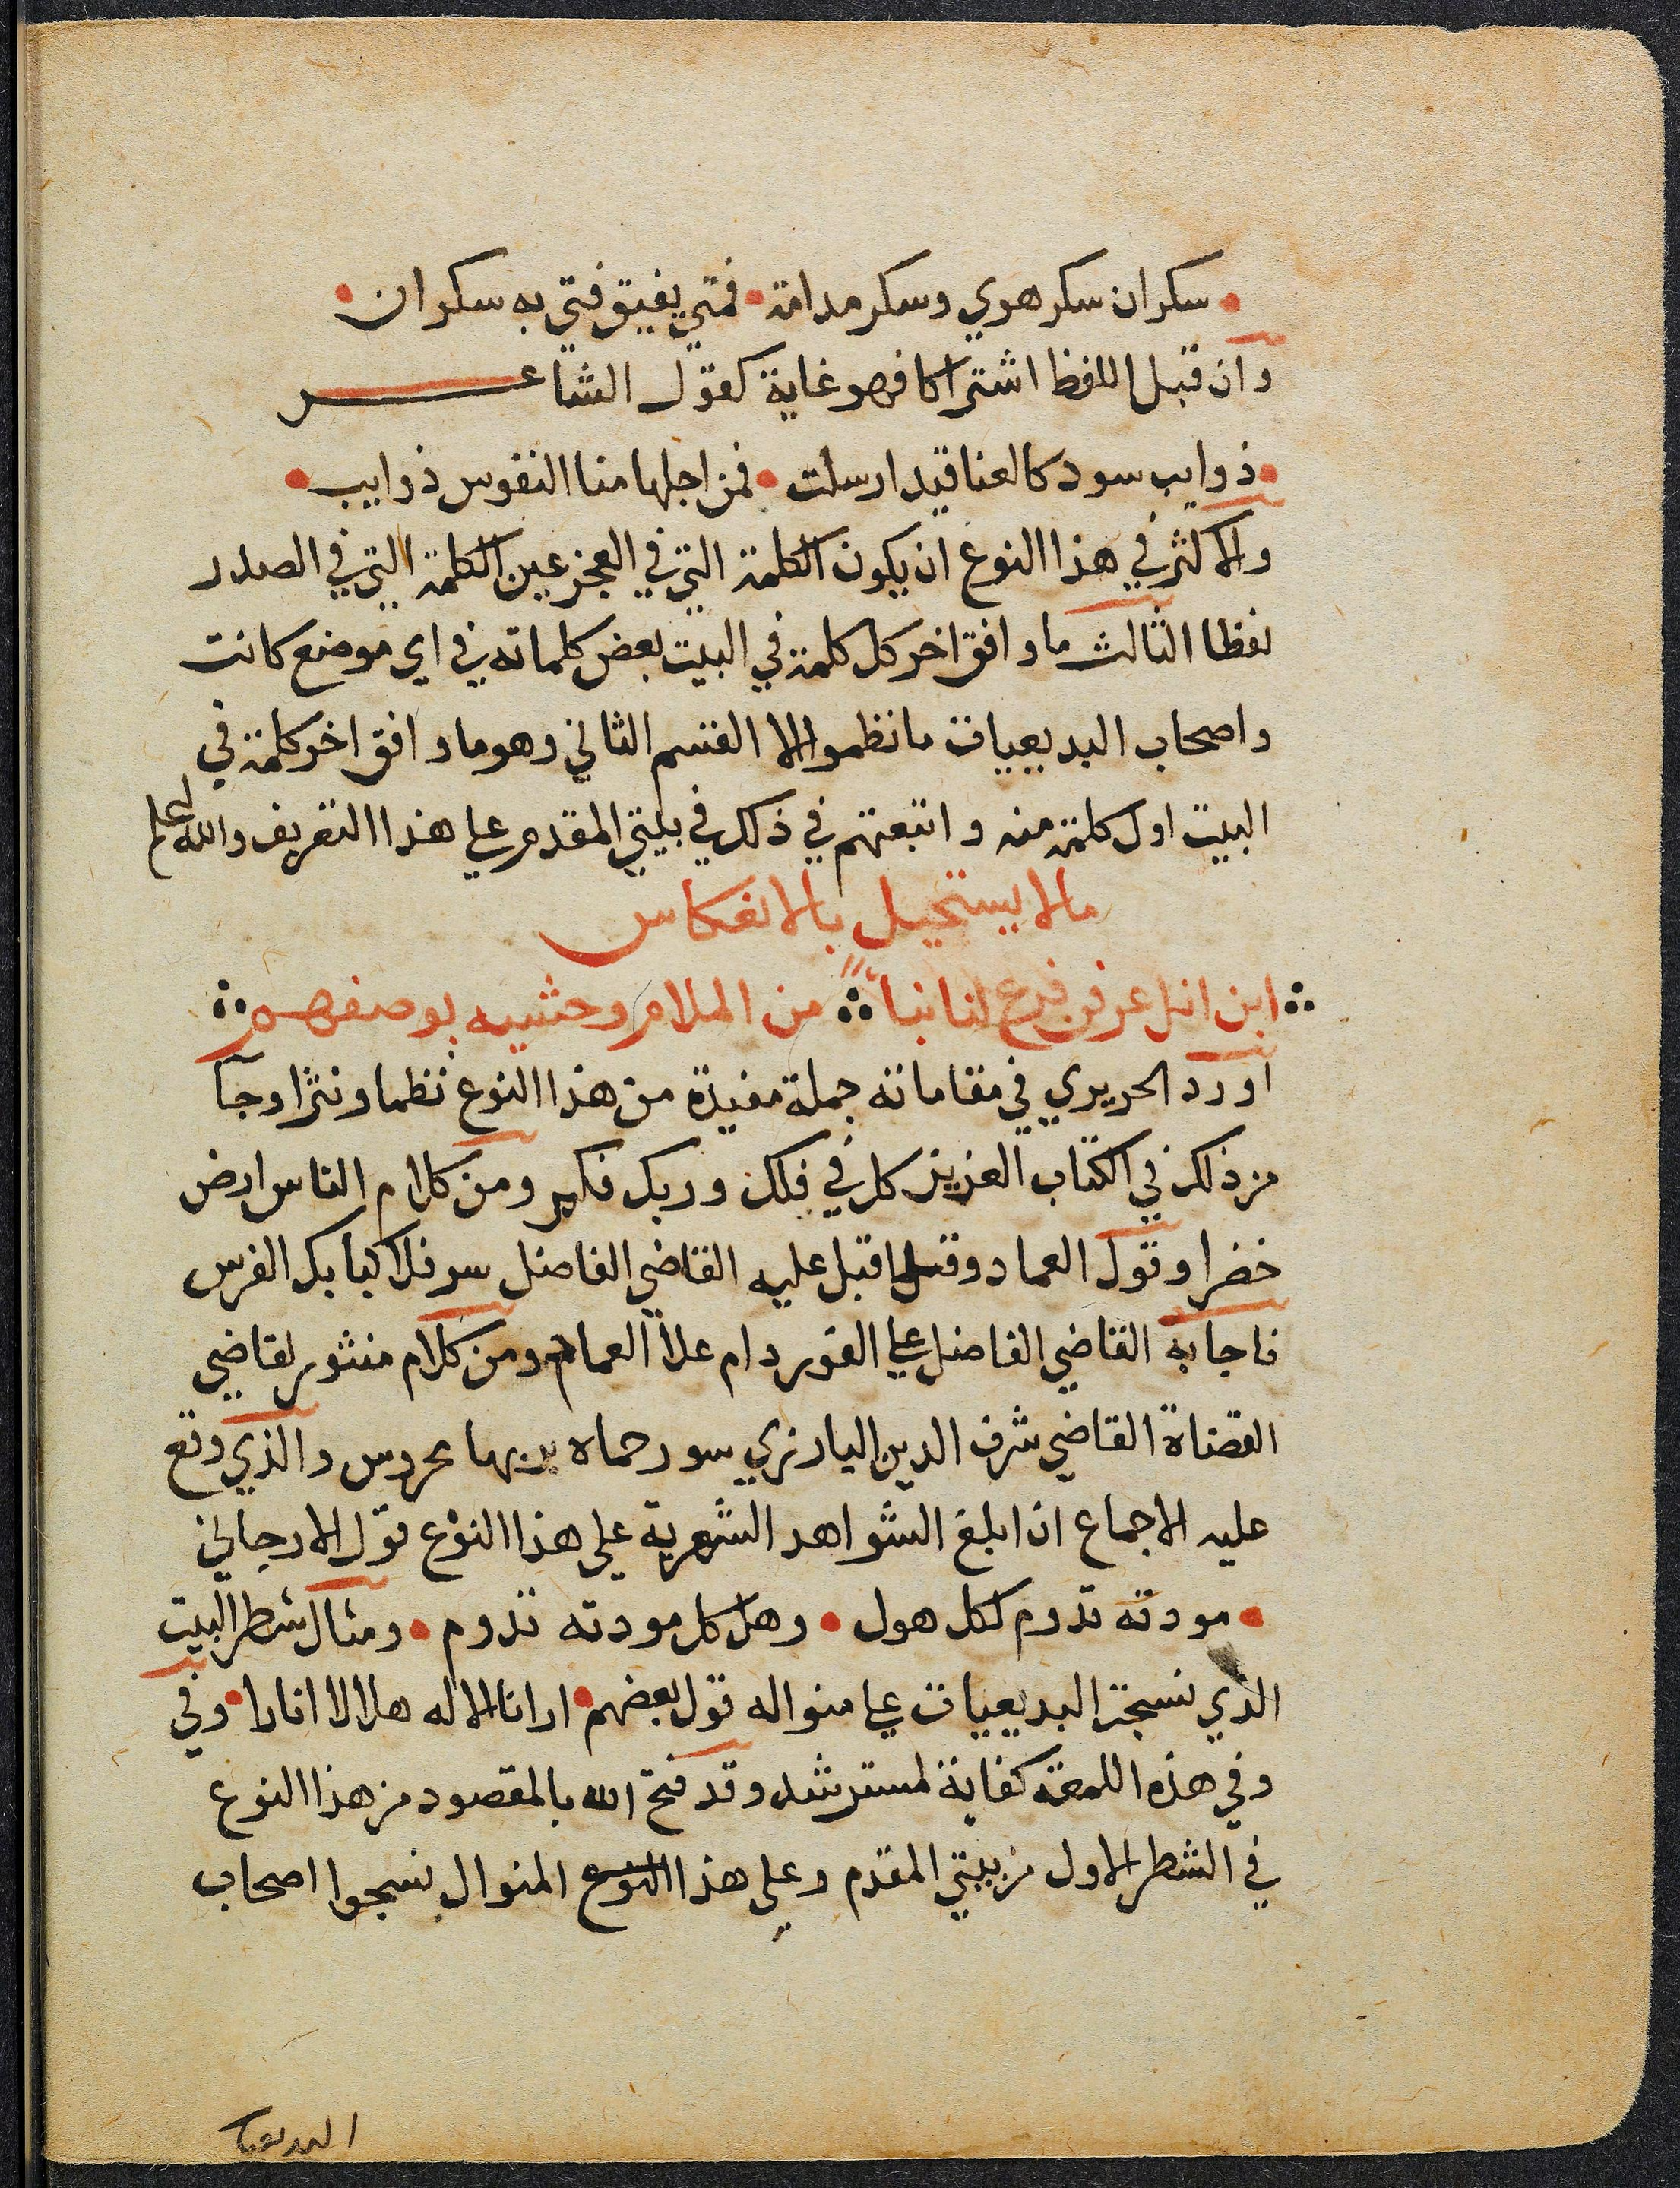 سكران سكر هوي وسكر مدامة • فمتي يفيق فتي به سكران
وان قبل اللفظ اشتراكا فهو غاية كقول الشاعر
ذوايب سود كالعناقيد ارسلت • فمن اجلها منا النفوس ذوايب
والاكثر في هذا النوع ان يكون الكلمة التي في العجز عين الكلمة التي في الصدر
لفظا الثالث ما وافق اخر كل كلمة في البيت بعض كلماته في اي موضع كانت
واصحاب البديعيات ما نظموا الا القسم الثاني وهو ما وافق اخر كلمة في
البيت اول كلمة منه واتبعتهم في ذلك في بيتي المقدم علي هذا التعريف والله اعلم
مالا يستحيل بالانعكاس
ابن انل عرفن فرع لنا نبا من الملام وحثيه بوصفهم
اورد الحريري في مقاماته جملة مفيدة من هذا النوع نظما ونثرا وجآ
من ذلك في الكتاب العزيز كل في فلك وربك فكبر ومن كلام الناس ارض
خضرا وقول العماد وقد اقبل عليه القاضي الفاضل سر فلا كبا بك الفرس
فاجابه القاضي الفاضل علي الفور دام علا العماد ومن كلام منثور لقاضي
القضاة القاضي شرف الدين البارزي سور حماه بربها محروس والذي وقع
عليه الاجماع ان ابلغ الشواهد الشعرية علي هذا النوع قول الارجاني
مودته تدوم لكل هول • وهل كل مودته تدوم • ومثال شطر البيت
الذي نسجت البديعيات علي منواله قول بعضهم • ارانا الاله هلالا انارا • وفي
وفي هذه اللمعة كفاية لمسترشد وقد فتح الله بالمقصود من هذا النوع
في الشطر الاول من بيتي المقدم وعلي هذا النوع المنوال نسجوا اصحاب
البديعيا